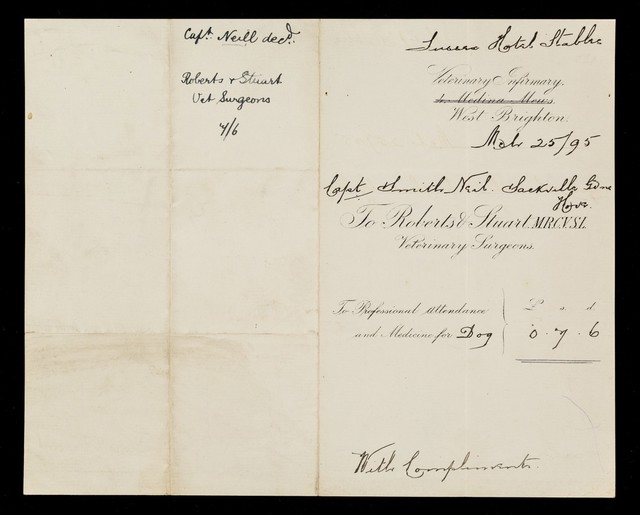 Capt. Neill decd.
Roberts & Stuart
Vet Surgeons
7/6
Sussex Hotel Stables
Veterinary Infirmary,
Medina Mews,
West Brighton.
25/95
Capt Smith Neil. Sackville Gdns
Hove.
To Roberts & Stuart, M.R.C.V.S.L.
Veterinary Surgeons.
To Professional Attendance
and Medicine for Dog
£ s. d.
0 . 7 . 6
With Compliments.